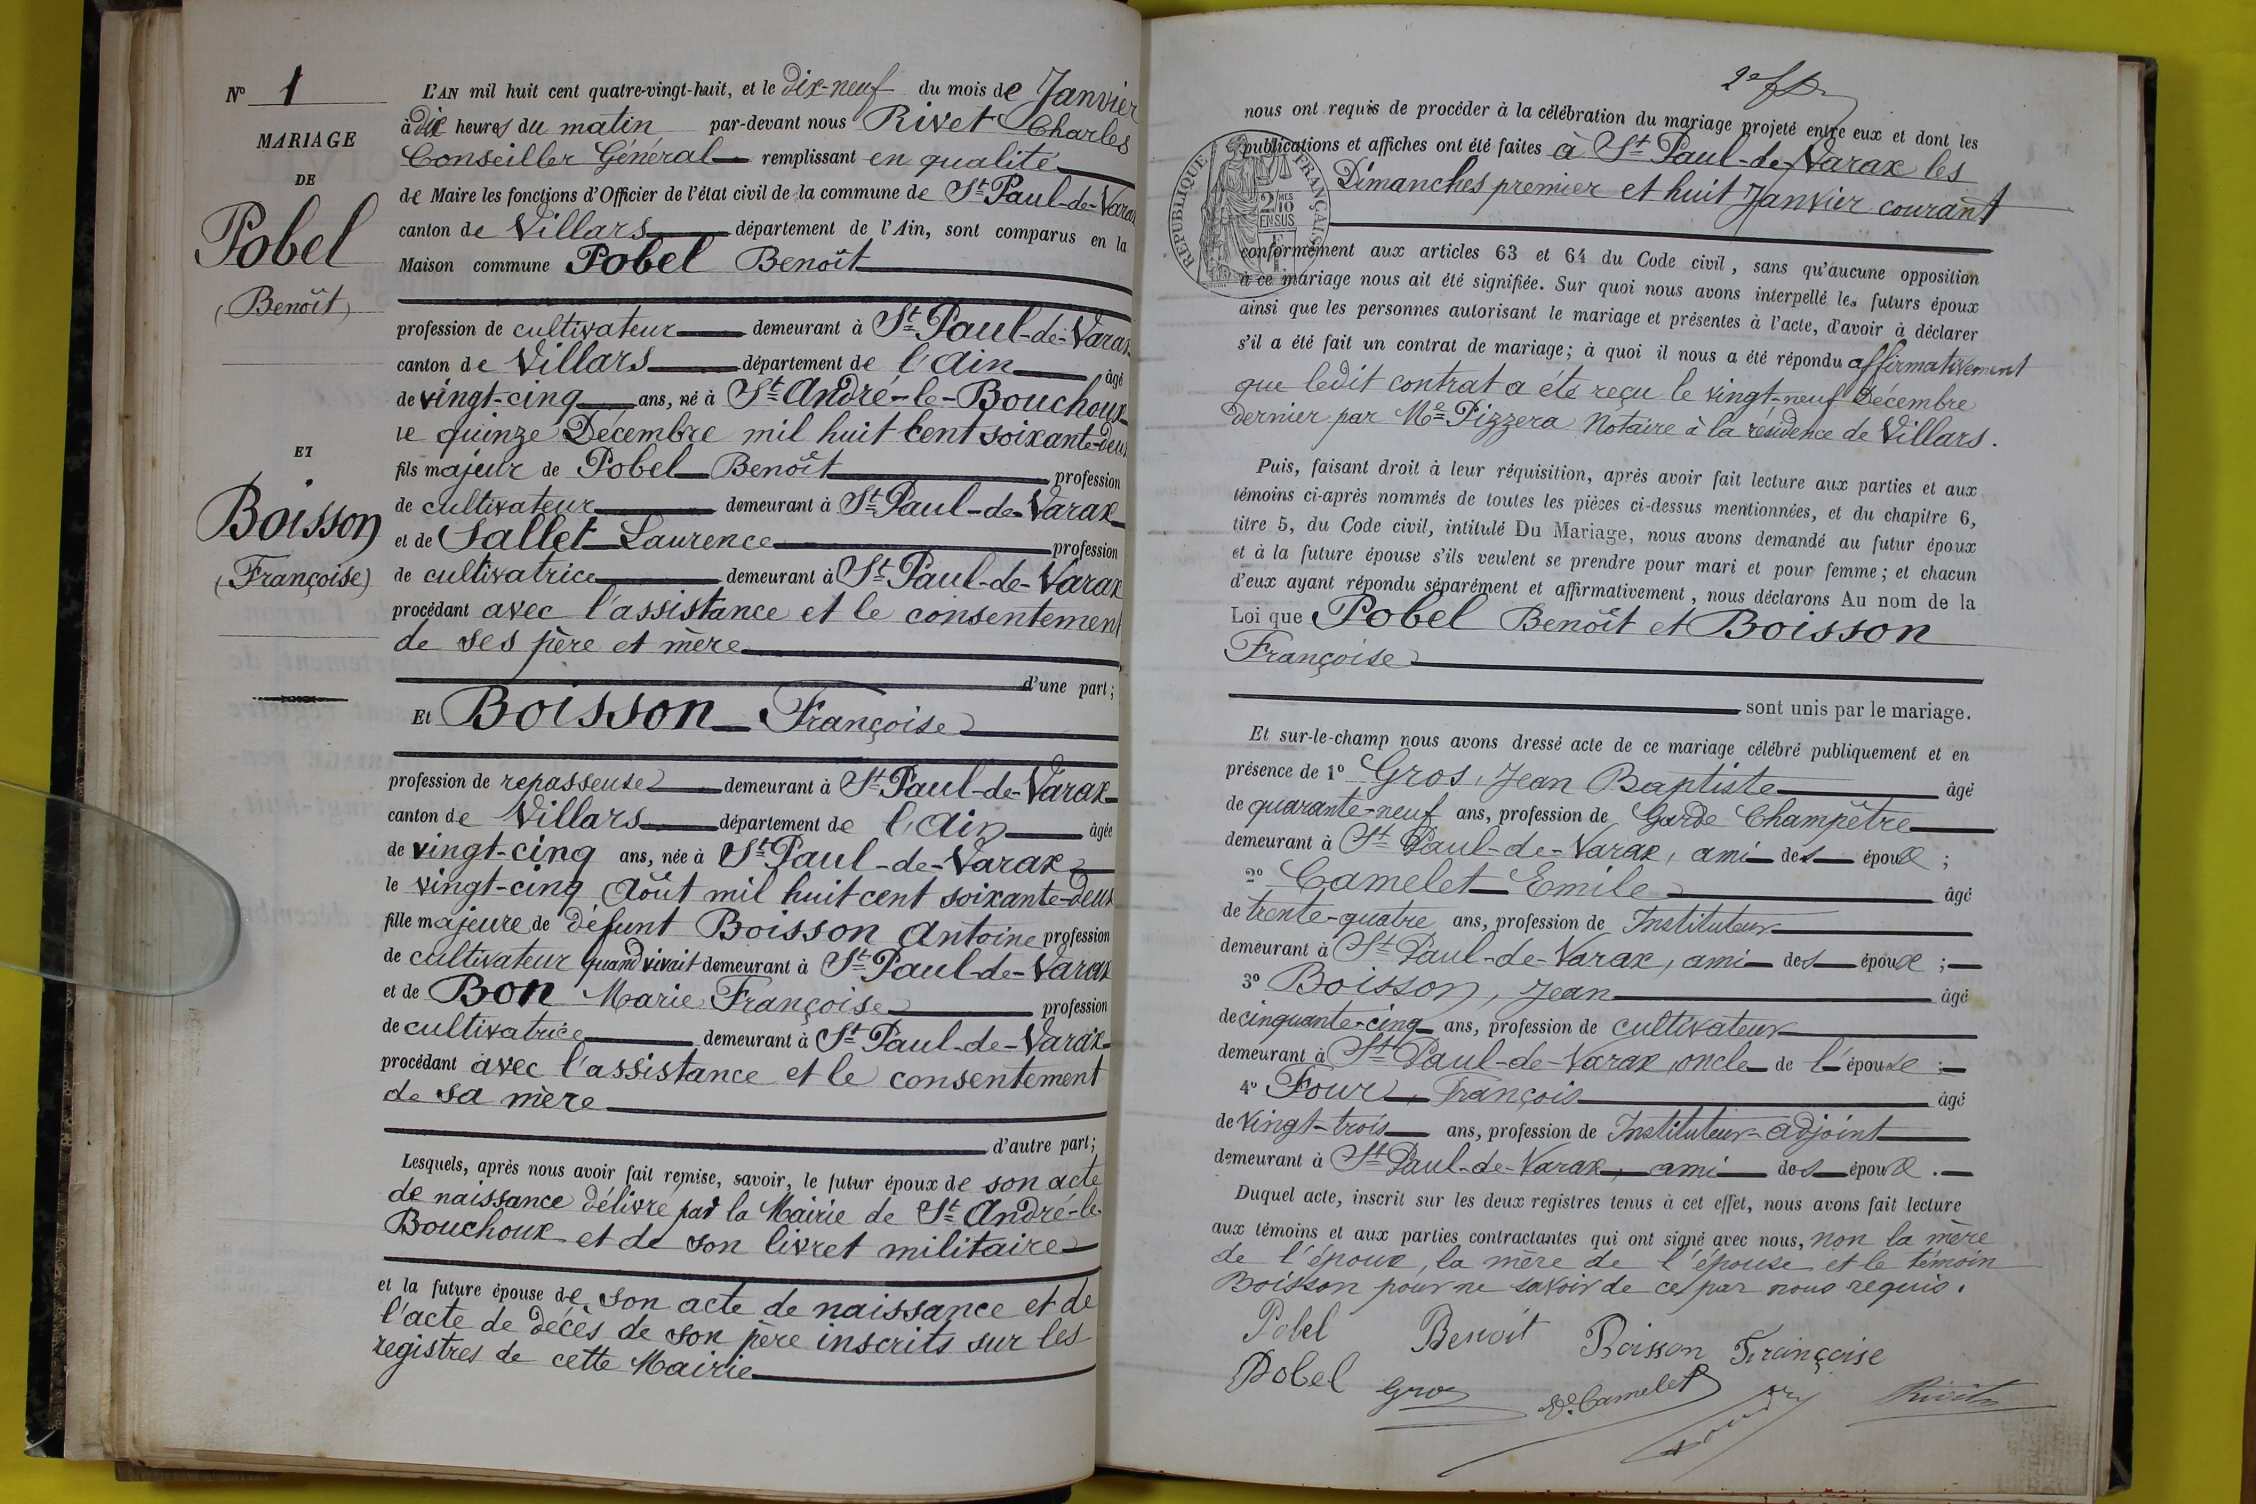 N° 1
MARIAGE
DE
Pobel
(Benoît)
ET
Boisson
(Françoise)
L'AN mil huit cent quatre-vingt-huit, et le dix-neuf du mois de Janvier
à dix heures du matin par-devant nous Rivet Charles
Conseiller Général remplissant en qualité
de Maire les fonctions d'Officier de l'état civil de la commune de St Paul-de-Varax
canton de Villars département de l'Ain, sont comparus en la
Maison commune Pobel Benoît
profession de cultivateur demeurant à St Paul-de-Varax
canton de Villars département de l'Ain âgé
de vingt-cinq ans, né à St André-le-Bouchoux
le quinze Décembre mil huit cent soixante-deux
fils majeur de Pobel Benoît profession
de cultivateur demeurant à St Paul-de-Varax
et de Sallet Laurence profession
de cultivatrice demeurant à St Paul-de-Varax
procédant avec l'assistance et le consentement
de ses père et mère
d'une part;
Et Boisson Françoise
profession de repasseuse demeurant à St Paul-de-Varax
canton de Villars département de l'Ain âgée
de vingt-cinq ans, née à St Paul-de-Varax
le vingt-cinq Août mil huit cent soixante-deux
fille majeure de défunt Boisson Antoine profession
de cultivateur quand vivait demeurant à St Paul-de-Varax
et de Bon Marie Françoise profession
de cultivatrice demeurant à St Paul-de-Varax
procédant avec l'assistance et le consentement
de sa mère
d'autre part;
Lesquels, après nous avoir fait remise, savoir, le futur époux de son acte
de naissance délivré par la Mairie de St André-le-
Bouchoux et de son livret militaire
et la future épouse de son acte de naissance et de
l'acte de décès de son père inscrits sur les
registres de cette Mairie
nous ont requis de procéder à la célébration du mariage projeté entre eux et dont les
publications et affiches ont été faites à St Paul-de-Varax les
Dimanches premier et huit Janvier courant
RÉPUBLIQUE FRANÇAISE
2 MES
10
EN SUS
conformément aux articles 63 et 64 du Code civil, sans qu'aucune opposition
à ce mariage nous ait été signifiée. Sur quoi nous avons interpellé les futurs époux
ainsi que les personnes autorisant le mariage et présentes à l'acte, d'avoir à déclarer
s'il a été fait un contrat de mariage; à quoi il nous a été répondu affirmativement
que ledit contrat a été reçu le vingt-neuf Décembre
dernier par Me Pizzera Notaire à la résidence de Villars.
Puis, faisant droit à leur réquisition, après avoir fait lecture aux parties et aux
témoins ci-après nommés de toutes les pièces ci-dessus mentionnées, et du chapitre 6,
titre 5, du Code civil, intitulé Du Mariage, nous avons demandé au futur époux
et à la future épouse s'ils veulent se prendre pour mari et pour femme; et chacun
d'eux ayant répondu séparément et affirmativement, nous déclarons Au nom de la
Loi que Pobel Benoît et Boisson
Françoise
sont unis par le mariage.
Et sur-le-champ nous avons dressé acte de ce mariage célébré publiquement et en
présence de 1° Gros, Jean Baptiste âgé
de quarante-neuf ans, profession de Garde Champêtre
demeurant à St Paul-de-Varax, ami des époux;
2° Camelet Emile âgé
de trente-quatre ans, profession de Instituteur
demeurant à St Paul-de-Varax, ami des époux;
3° Boisson, Jean âgé
de cinquante-cinq ans, profession de cultivateur
demeurant à St Paul-de-Varax, oncle de l'épouse;
4° Four, François âgé
de vingt-trois ans, profession de Instituteur-adjoint
demeurant à St Paul-de-Varax, ami des époux.
Duquel acte, inscrit sur les deux registres tenus à cet effet, nous avons fait lecture
aux témoins et aux parties contractantes qui ont signé avec nous, non la mère
de l'époux, la mère de l'épouse et le témoin
Boisson pour ne savoir de ce par nous requis.
Pobel Benoit Boisson Françoise
Pobel Gros E. Camelet Four Rivet